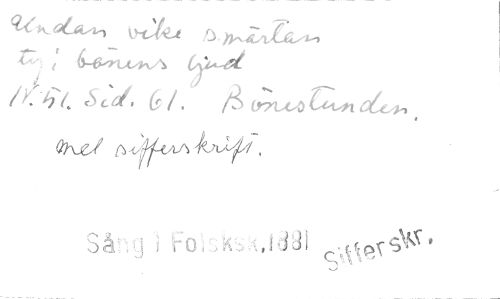 Undan vike smärtan
ty i bönens ljud
N. 51. Sid. 61. Bönestunden.
mel sifferskrift.
Sång i Folsksk,1881 Sifferskr.